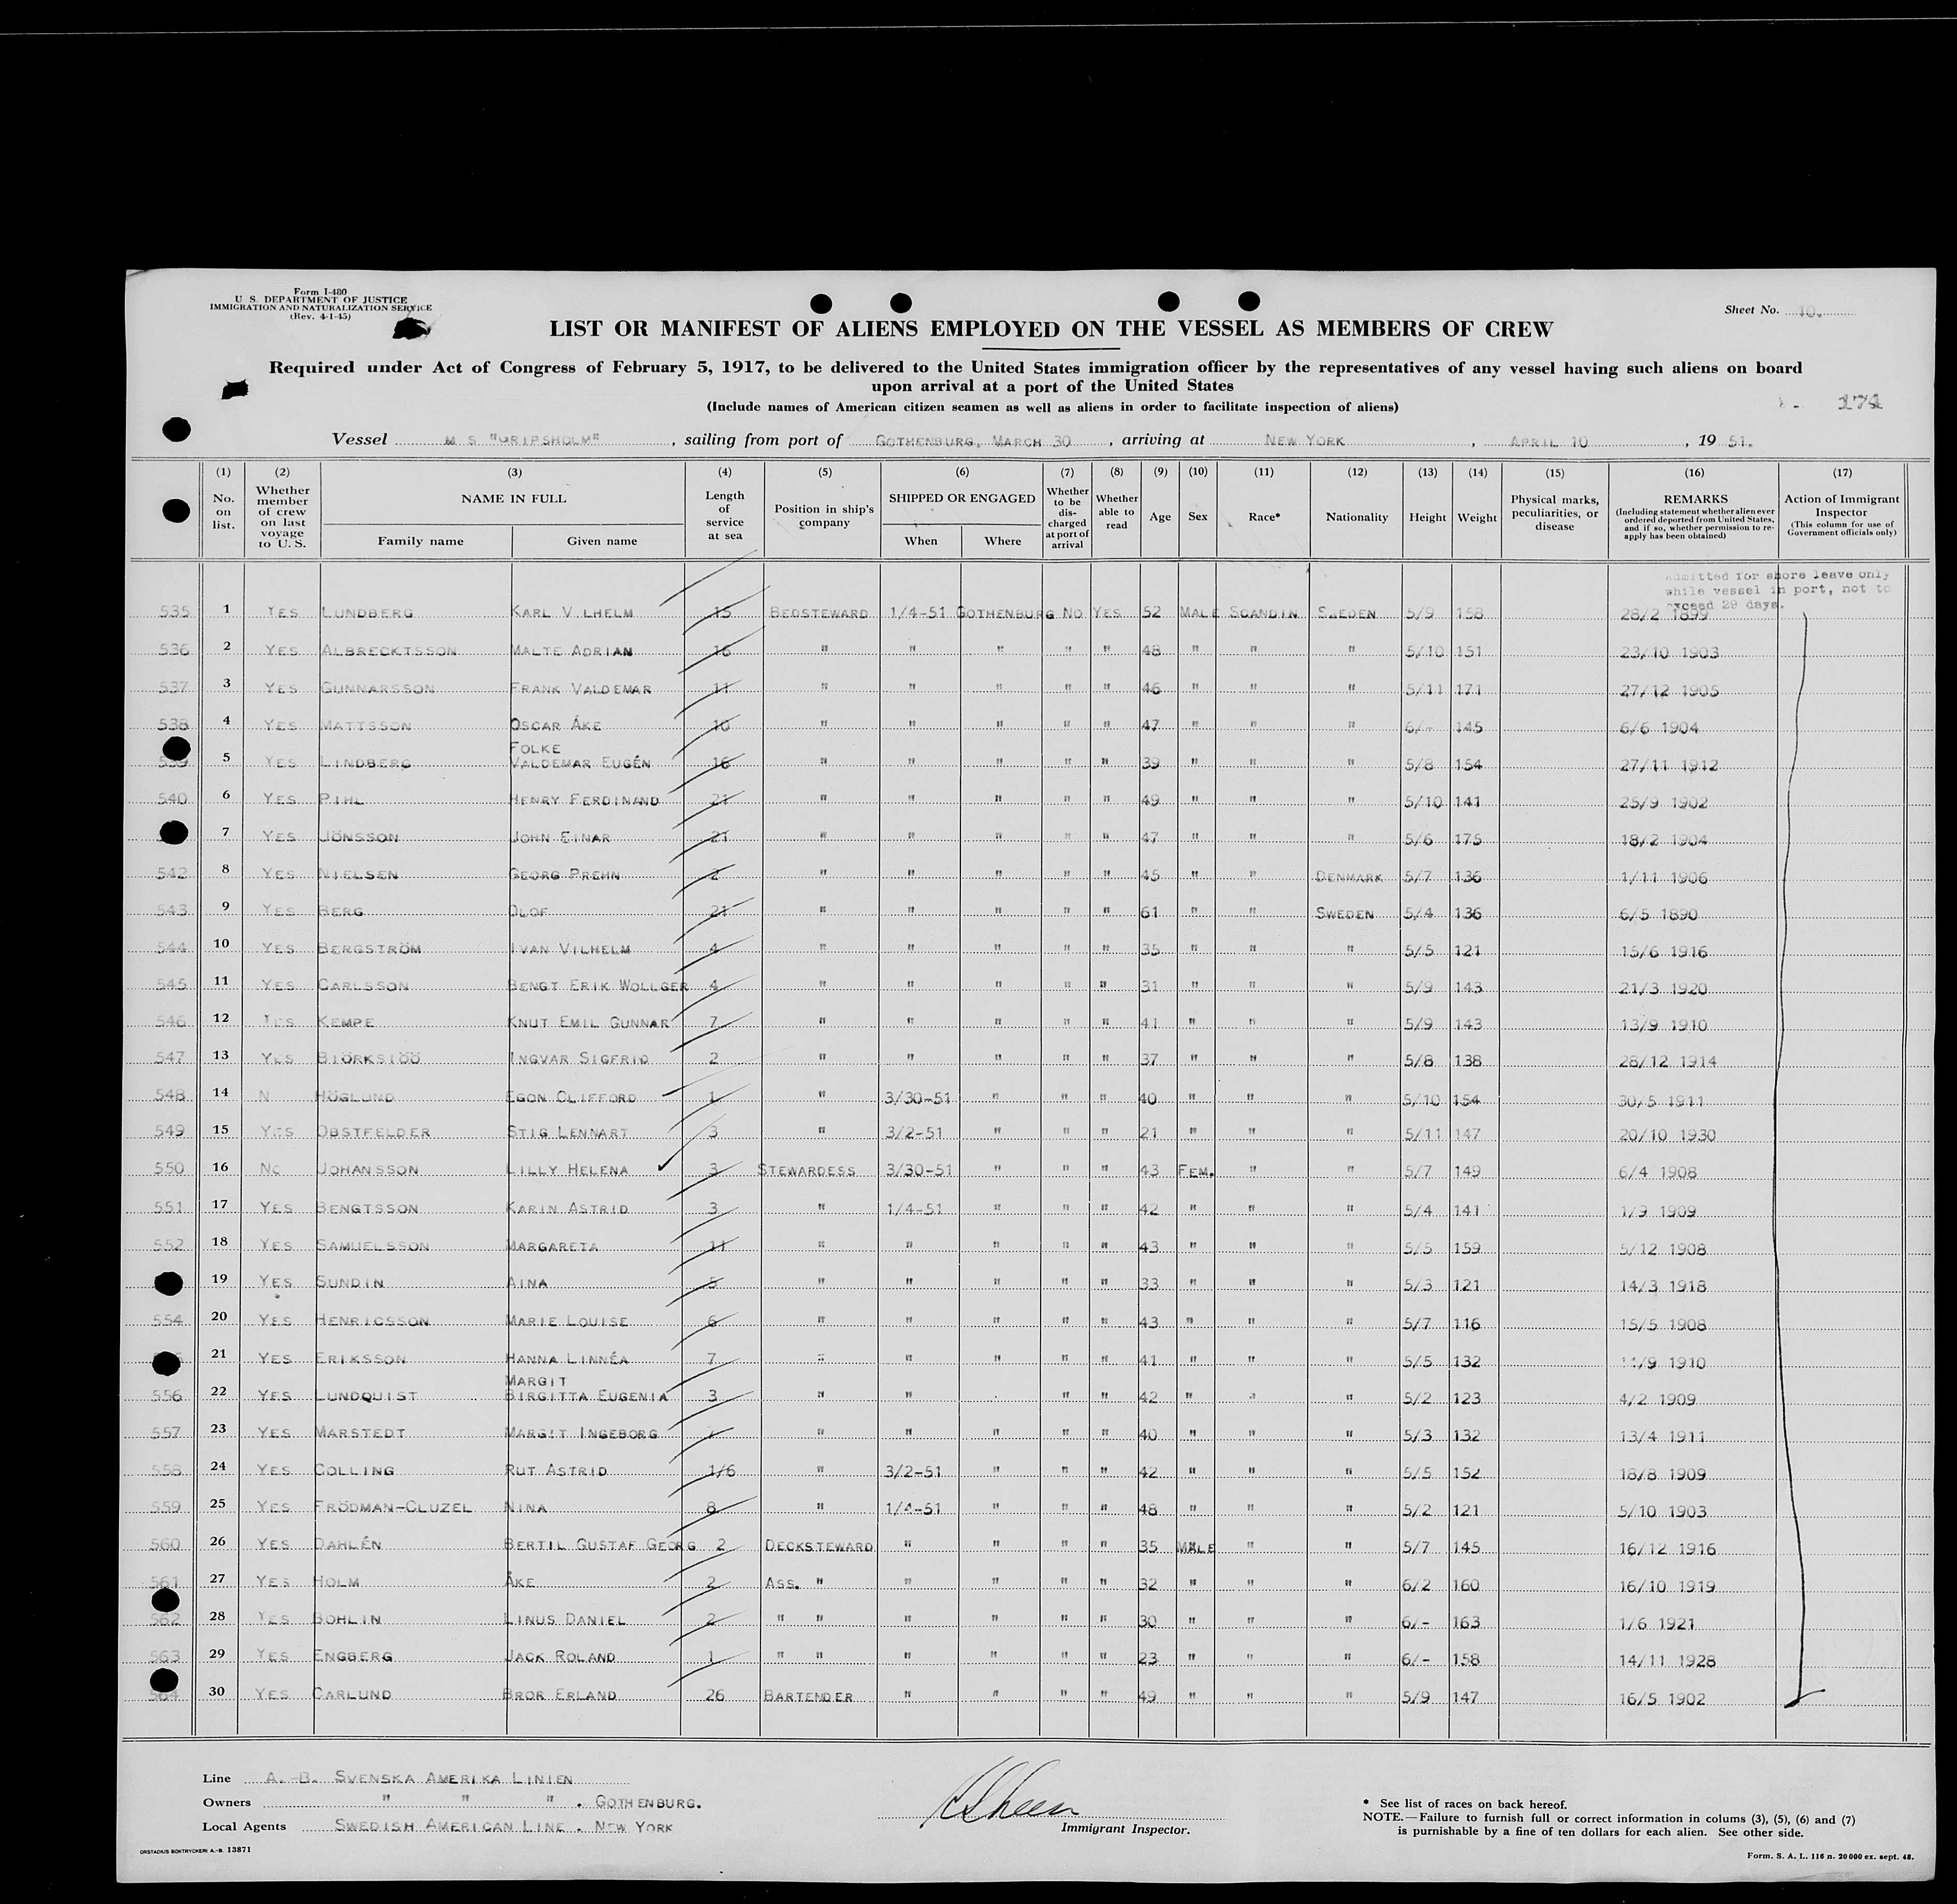 Form I-480
U. S. DEPARTMENT OF JUSTICE
IMMIGRATION AND NATURALIZATION SERVICE
(Rev. 4-1-45)
Sheet No. 10.
LIST OR MANIFEST OF ALIENS EMPLOYED ON THE VESSEL AS MEMBERS OF CREW
Required under Act of Congress of February 5, 1917, to be delivered to the United States immigration officer by the representatives of any vessel having such aliens on board
upon arrival at a port of the United States
(Include names of American citizen seamen as well as aliens in order to facilitate inspection of aliens)
174
Vessel M S "GRIPSHOLM", sailing from port of GOTHENBURG, MARCH 30, arriving at NEW YORK, APRIL 10, 19 51.
(1) No. on list. (2) Whether member of crew on last voyage to U. S. (3) NAME IN FULL Family name Given name (4) Length of service at sea (5) Position in ship's company (6) SHIPPED OR ENGAGED When Where (7) Whether to be discharged at port of arrival (8) Whether able to read (9) Age (10) Sex (11) Race* (12) Nationality (13) Height (14) Weight (15) Physical marks, peculiarities, or disease (16) REMARKS (Including statement whether alien ever ordered deported from United States, and if so, whether permission to re-apply has been obtained) (17) Action of Immigrant Inspector (This column for use of Government officials only)
Admitted for shore leave only
while vessel in port, not to
exceed 29 days.
535 1 YES LUNDBERG KARL VILHELM 15 BEDSTEWARD 1/4-51 GOTHENBURG NO YES 52 MALE SCANDIN SWEDEN 5/9 158 28/2 1899
536 2 YES ALBRECKTSSON MALTE ADRIAN 16 " " " " " 48 " " " 5/10 151 23/10 1903
537 3 YES GUNNARSSON FRANK VALDEMAR 11 " " " " " 46 " " " 5/11 171 27/12 1905
538 4 YES MATTSSON OSCAR ÅKE 10 " " " " " 47 " " " 6/- 145 6/6 1904
539 5 YES LINDBERG FOLKE VALDEMAR EUGÉN 16 " " " " " 39 " " " 5/8 154 27/11 1912
540 6 YES PIHL HENRY FERDINAND 21 " " " " " 49 " " " 5/10 141 25/9 1902
7 YES JÖNSSON JOHN EINAR 21 " " " " " 47 " " " 5/6 175 18/2 1904
542 8 YES NIELSEN GEORG PREHN 2 " " " " " 45 " " DENMARK 5/7 136 1/11 1906
543 9 YES BERG OLOF 21 " " " " " 61 " " SWEDEN 5/4 136 6/5 1890
544 10 YES BERGSTRÖM IVAN VILHELM 4 " " " " " 35 " " " 5/5 121 15/6 1916
545 11 YES CARLSSON BENGT ERIK WOLLGER 4 " " " " " 31 " " " 5/9 143 21/3 1920
546 12 YES KEMPE KNUT EMIL GUNNAR 7 " " " " " 41 " " " 5/9 143 13/9 1910
547 13 YES BJÖRKSJÖÖ INGVAR SIGFRID 2 " " " " " 37 " " " 5/8 138 28/12 1914
548 14 N HÖGLUND EGON CLIFFORD 1 " 3/30-51 " " " 40 " " " 5/10 154 30/5 1911
549 15 YES OBSTFELDER STIG LENNART 3 " 3/2-51 " " " 21 " " " 5/11 147 20/10 1930
550 16 NO JOHANSSON LILLY HELENA 3 STEWARDESS 3/30-51 " " " 43 FEM. " " 5/7 149 6/4 1908
551 17 YES BENGTSSON KARIN ASTRID 3 " 1/4-51 " " " 42 " " " 5/4 141 1/9 1909
552 18 YES SAMUELSSON MARGARETA 11 " " " " " 43 " " " 5/5 159 5/12 1908
19 YES SUNDIN AINA 5 " " " " " 33 " " " 5/3 121 14/3 1918
554 20 YES HENRICSSON MARIE LOUISE 6 " " " " " 43 " " " 5/7 116 15/5 1908
21 YES ERIKSSON HANNA LINNÉA 7 " " " " " 41 " " " 5/5 132 11/9 1910
556 22 YES LUNDQUIST MARGIT BIRGITTA EUGENIA 3 " " " " 42 " " " 5/2 123 4/2 1909
557 23 YES MARSTEDT MARGIT INGEBORG " " " " " 40 " " " 5/3 132 13/4 1911
558 24 YES COLLING RUT ASTRID 1/6 " 3/2-51 " " " 42 " " " 5/5 152 18/8 1909
559 25 YES FRÖDMAN-CLUZEL NINA 8 " 1/4-51 " " " 48 " " " 5/2 121 5/10 1903
560 26 YES DAHLÉN BERTIL GUSTAF GEORG 2 DECKSTEWARD " " " " 35 MALE " " 5/7 145 16/12 1916
561 27 YES HOLM ÅKE 2 ASS. " " " " " 32 " " " 6/2 160 16/10 1919
562 28 YES BOHLIN LINUS DANIEL 2 " " " " " " 30 " " " 6/- 163 1/6 1921
563 29 YES ENGBERG JACK ROLAND 1 " " " " " " 23 " " " 6/- 158 14/11 1928
564 30 YES CARLUND BROR ERLAND 26 BARTENDER " " " " 49 " " " 5/9 147 16/5 1902
Line A.-B. SVENSKA AMERIKA LINIEN
Owners " " " . GOTHENBURG.
Local Agents SWEDISH AMERICAN LINE. NEW YORK
Immigrant Inspector.
* See list of races on back hereof.
NOTE.—Failure to furnish full or correct information in colums (3), (5), (6) and (7)
is punishable by a fine of ten dollars for each alien. See other side.
ORSTADIUS BOKTRYCKERI A.-B. 13871
Form. S. A. L. 116 n. 20 000 ex. sept. 48.